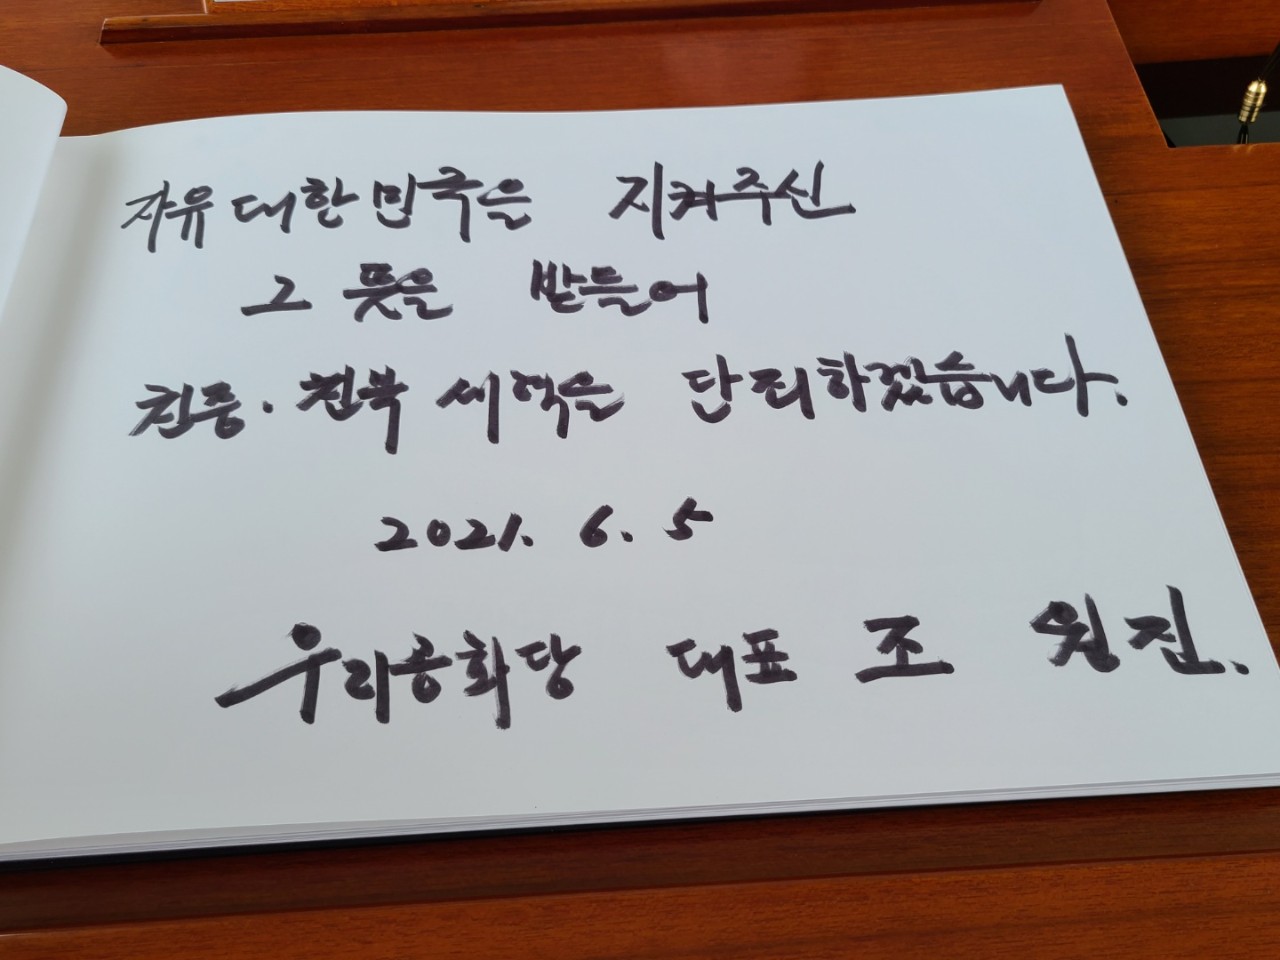 자유대한민국을 지켜주신
그 뜻을 받들어
친중·친북 세력을 단죄하겠습니다.
2021. 6. 5
우리공화당 대표 조 원진.